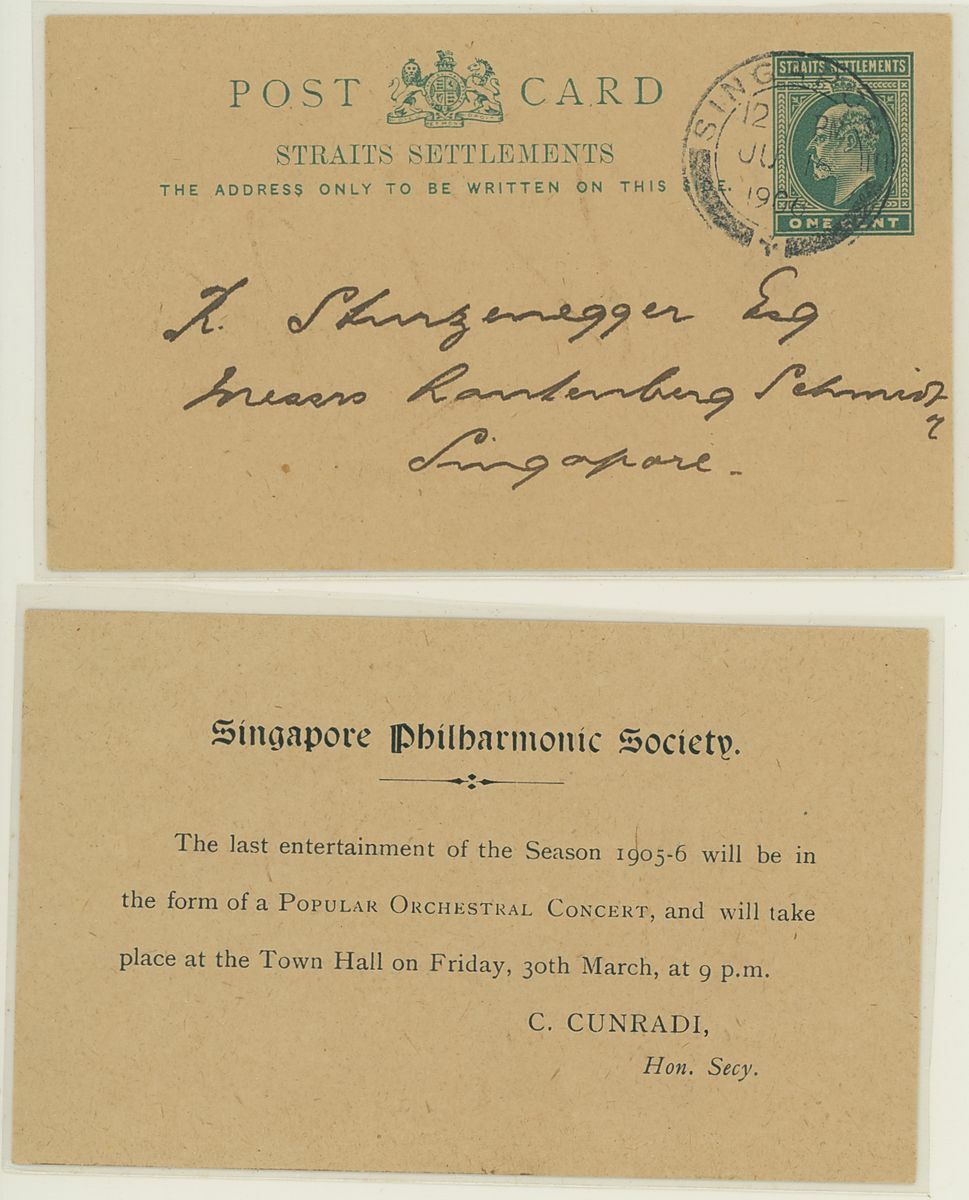 POST CARD
STRAITS SETTLEMENTS
THE ADDRESS ONLY TO BE WRITTEN ON THIS SIDE.
STRAITS SETTLEMENTS
ONE CENT
SINGAPORE
12
1906
K. Sturzenegger Esq
Messrs Rautenberg Schmidt
Singapore.
Singapore Philharmonic Society.
The last entertainment of the Season 1905-6 will be in
the form of a POPULAR ORCHESTRAL CONCERT, and will take
place at the Town Hall on Friday, 30th March, at 9 p.m.
C. CUNRADI,
Hon. Secy.